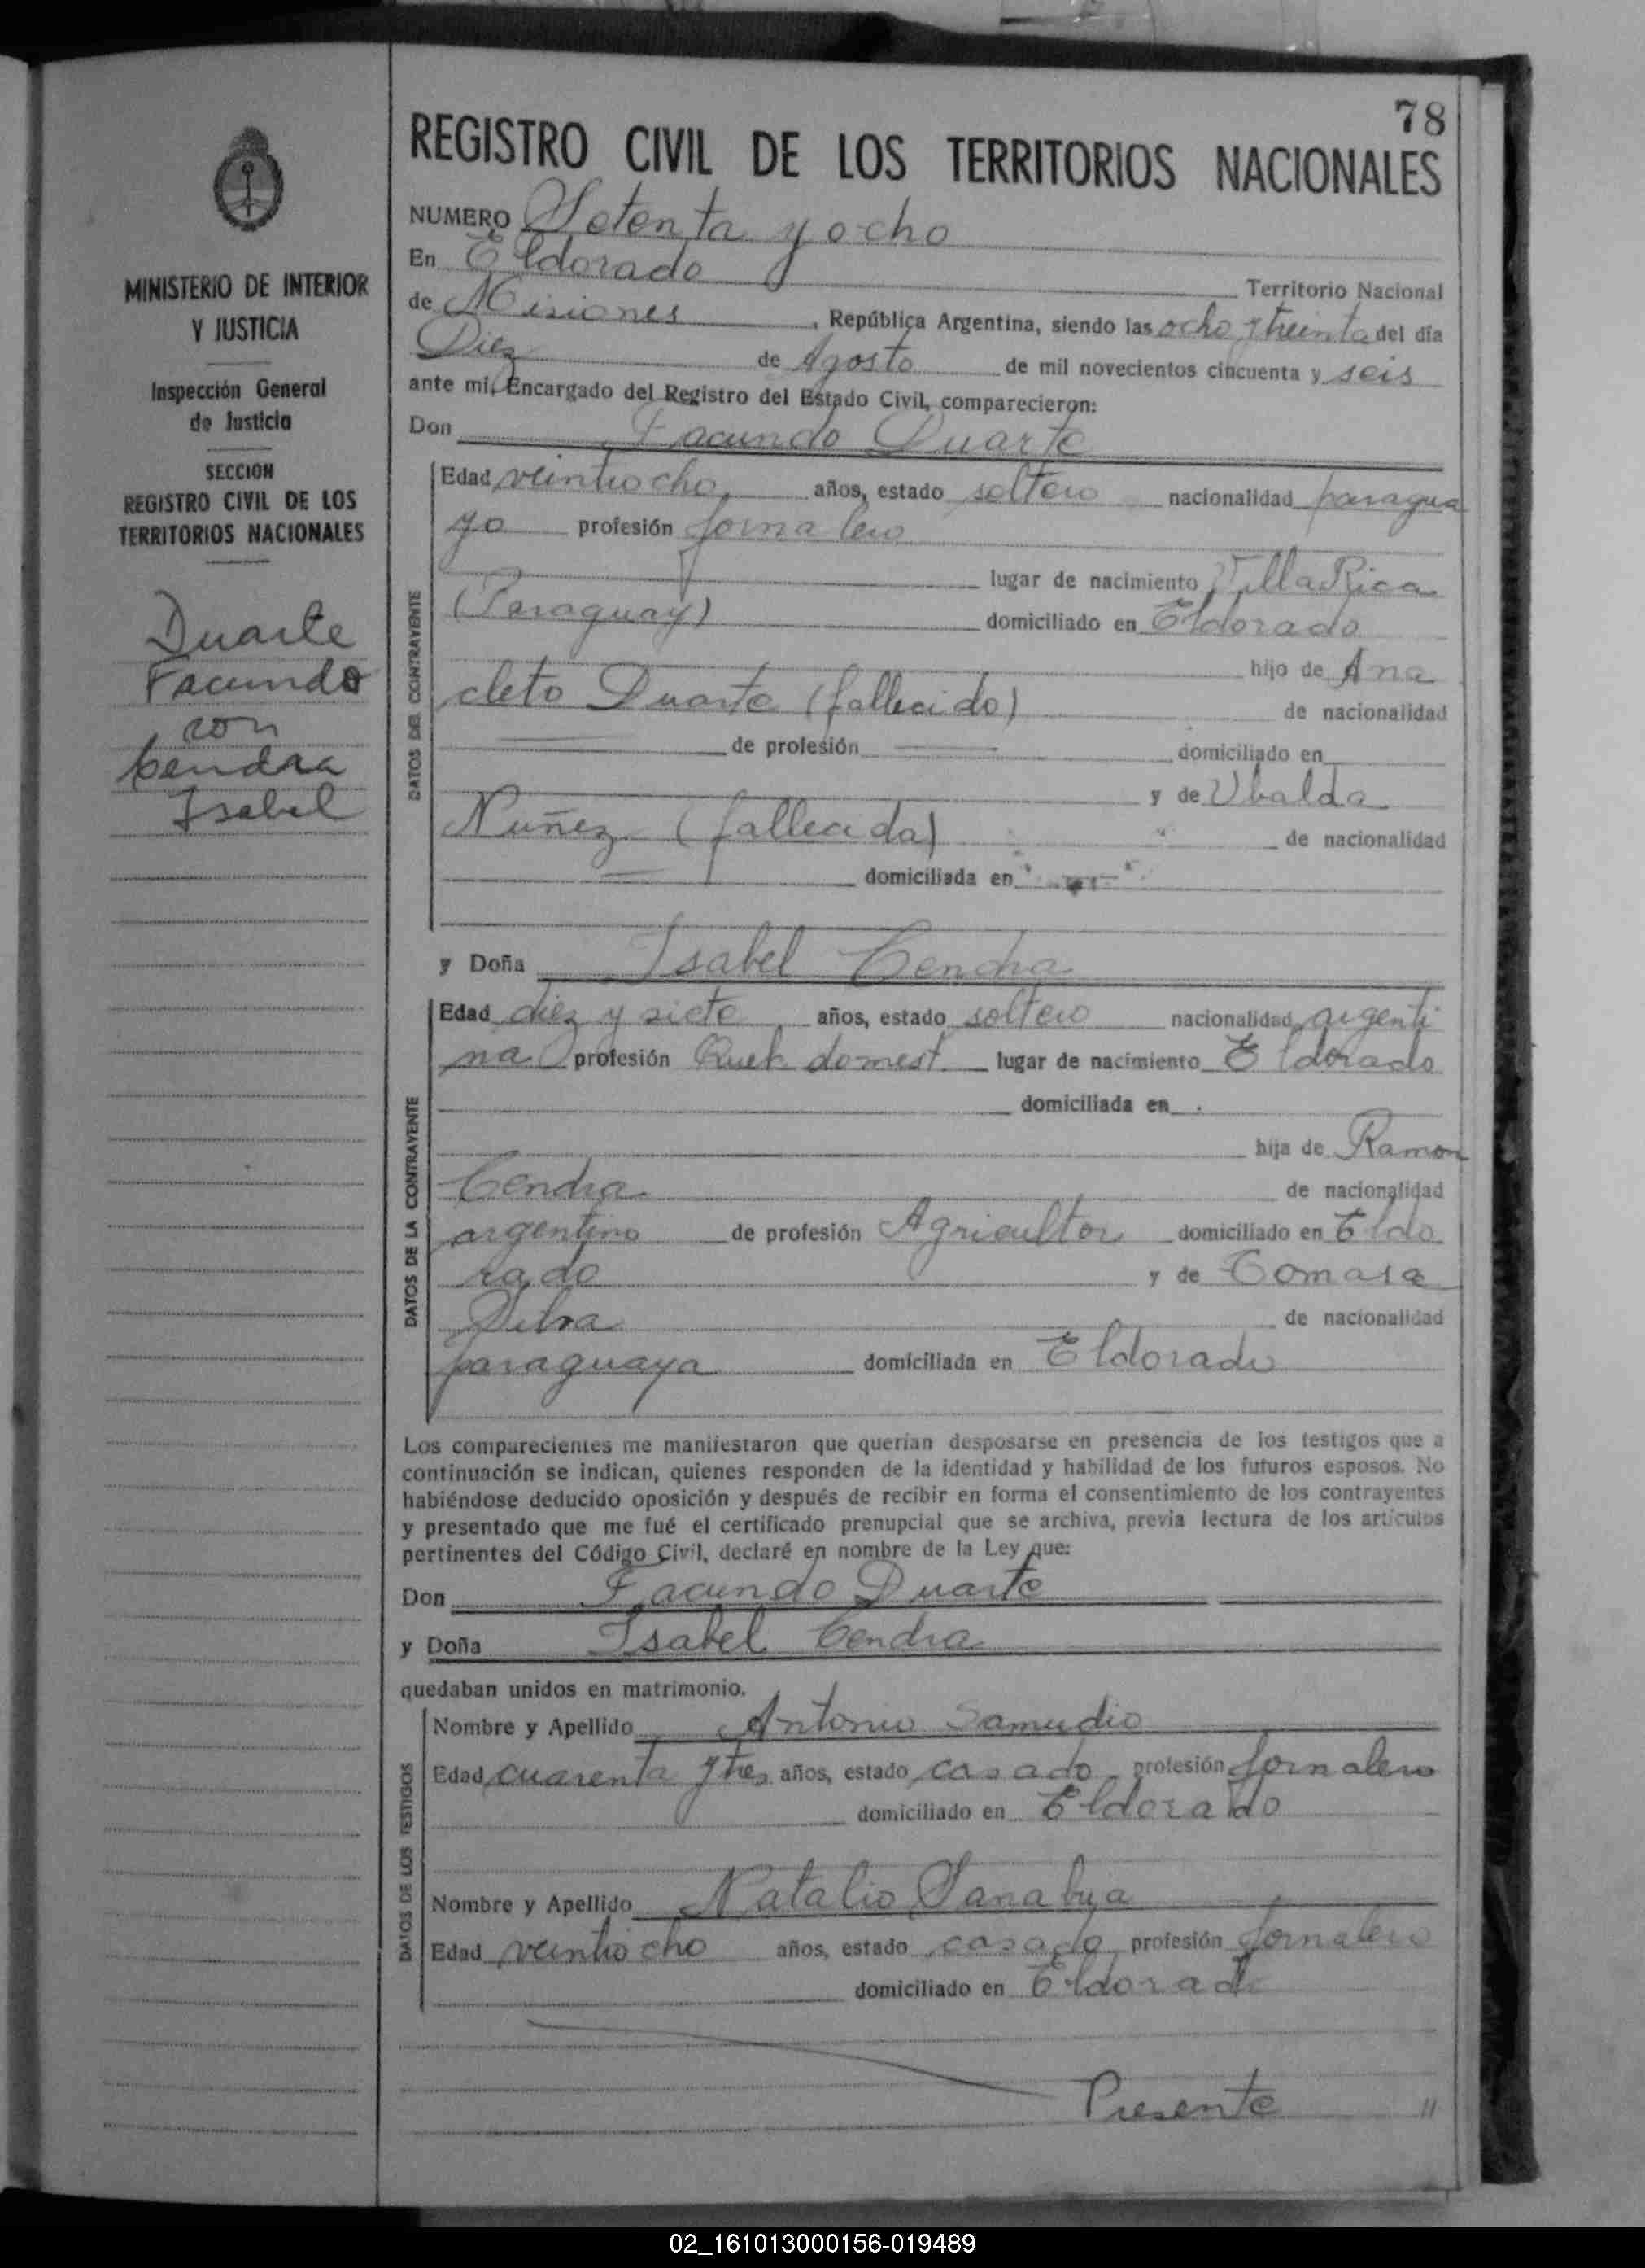 78
REGISTRO CIVIL DE LOS TERRITORIOS NACIONALES
MINISTERIO DE INTERIOR
Y JUSTICIA
Inspección General
de Justicia
SECCION
REGISTRO CIVIL DE LOS
TERRITORIOS NACIONALES
Duarte
Facundo
con
Cendra
Isabel
NUMERO Setenta y ocho
En Eldorado Territorio Nacional
de Misiones, República Argentina, siendo las ocho y treinta del día
Diez de Agosto de mil novecientos cincuenta y seis
ante mi, Encargado del Registro del Estado Civil, comparecieron:
Don Facundo Duarte
DATOS DEL CONTRAYENTE
Edad veintiocho, años, estado soltero nacionalidad paragua
yo profesión jornalero
lugar de nacimiento Villa Rica
(Paraguay) domiciliado en Eldorado
hijo de Ana
cleto Duarte (fallecido) de nacionalidad
de profesión domiciliado en
y de Ubalda
Nuñez (fallecida) de nacionalidad
domiciliada en
y Doña Isabel Cendra
DATOS DE LA CONTRAYENTE
Edad diez y siete años, estado soltero nacionalidad argenti
na profesión Queh. domest. lugar de nacimiento Eldorado
domiciliada en
hija de Ramon
Cendra de nacionalidad
argentino de profesión Agricultor domiciliado en Eldo
rado y de Tomasa
Silva de nacionalidad
paraguaya domiciliada en Eldorado
Los comparecientes me manifestaron que querían desposarse en presencia de los testigos que a
continuación se indican, quienes responden de la identidad y habilidad de los futuros esposos. No
habiéndose deducido oposición y después de recibir en forma el consentimiento de los contrayentes
y presentado que me fué el certificado prenupcial que se archiva, previa lectura de los artículos
pertinentes del Código Civil, declaré en nombre de la Ley que:
Don Facundo Duarte
y Doña Isabel Cendra
quedaban unidos en matrimonio.
DATOS DE LOS TESTIGOS
Nombre y Apellido Antonio Samudio
Edad cuarenta y tres años, estado casado profesión jornalero
domiciliado en Eldorado
Nombre y Apellido Natalio Sanabria
Edad veintiocho años, estado casado profesión jornalero
domiciliado en Eldorado
Presente //
02_161013000156-019489